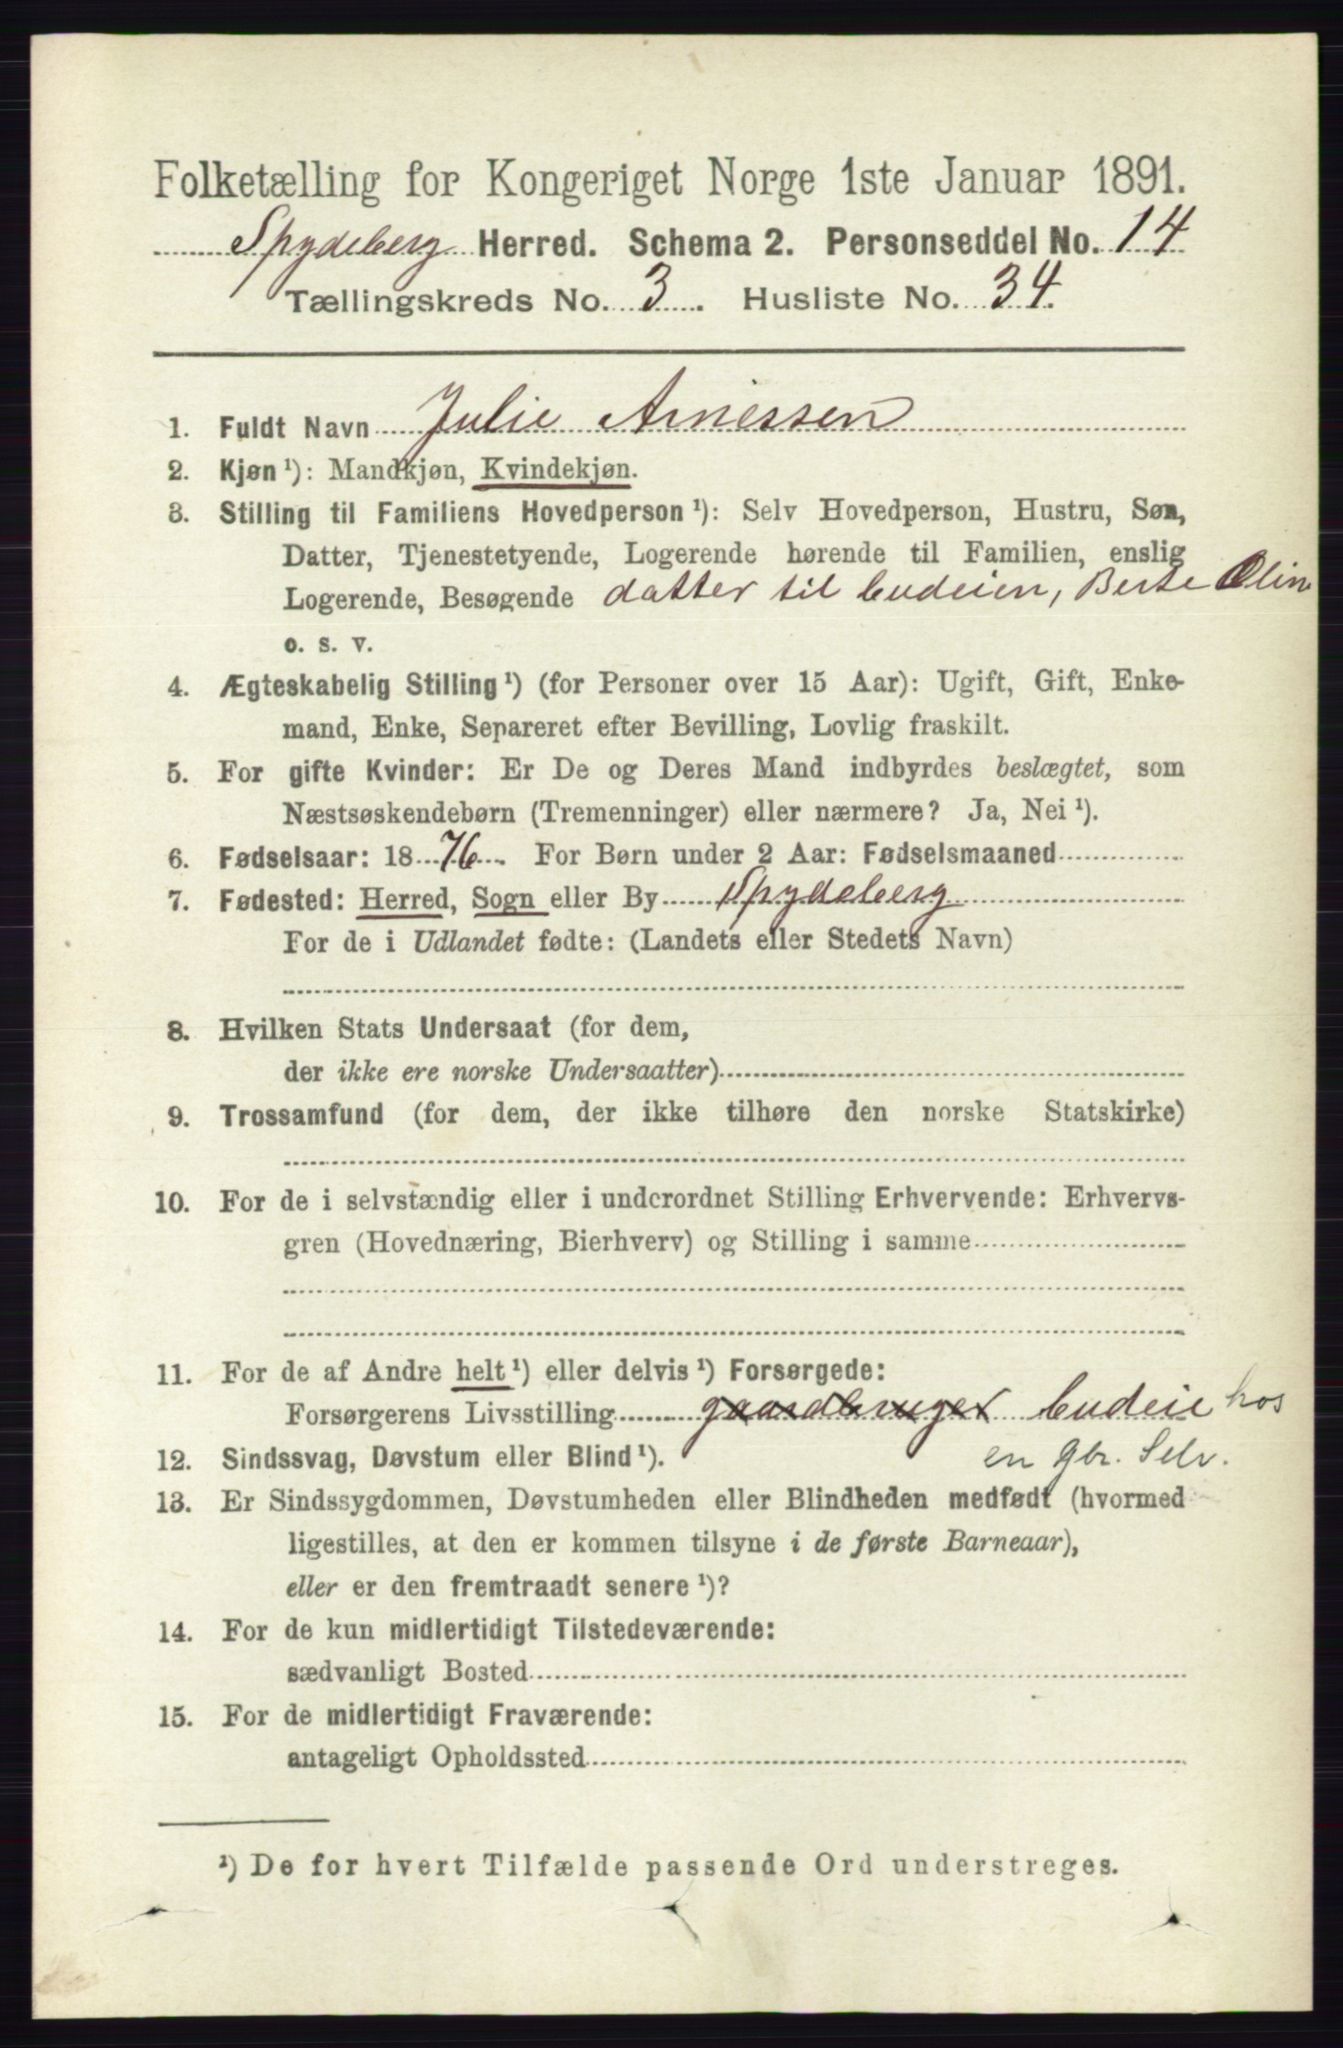 Folketælling for Kongeriget Norge 1ste Januar 1891.
Spydeberg Herred. Schema 2. Personseddel No. 14
Tællingskreds No. 3. Husliste No. 34.
1. Fuldt Navn Julie Arnessen
2. Kjøn ¹): Mandkjøn, Kvindekjøn.
3. Stilling til Familiens Hovedperson ¹): Selv Hovedperson, Hustru, Søn,
Datter, Tjenestetyende, Logerende hørende til Familien, enslig
Logerende, Besøgende datter til budeien, Berte Olin
o. s. v.
4. Ægteskabelig Stilling ¹) (for Personer over 15 Aar): Ugift, Gift, Enke-
mand, Enke, Separeret efter Bevilling, Lovlig fraskilt.
5. For gifte Kvinder: Er De og Deres Mand indbyrdes beslægtet, som
Næstsøskendebørn (Tremenninger) eller nærmere? Ja, Nei ¹).
6. Fødselsaar: 1876. For Børn under 2 Aar: Fødselsmaaned
7. Fødested: Herred, Sogn eller By Spydeberg
For de i Udlandet fødte: (Landets eller Stedets Navn)
8. Hvilken Stats Undersaat (for dem,
der ikke ere norske Undersaatter)
9. Trossamfund (for dem, der ikke tilhøre den norske Statskirke)
10. For de i selvstændig eller i underordnet Stilling Erhvervende: Erhvervs-
gren (Hovednæring, Bierhverv) og Stilling i samme
11. For de af Andre helt ¹) eller delvis ¹) Forsørgede:
Forsørgerens Livsstilling gaardbruger budeie hos
12. Sindssvag, Døvstum eller Blind ¹). en gbr. Selv.
13. Er Sindssygdommen, Døvstumheden eller Blindheden medfødt (hvormed
ligestilles, at den er kommen tilsyne i de første Barneaar),
eller er den fremtraadt senere ¹)?
14. For de kun midlertidigt Tilstedeværende:
sædvanligt Bosted
15. For de midlertidigt Fraværende:
antageligt Opholdssted
¹) De for hvert Tilfælde passende Ord understreges.